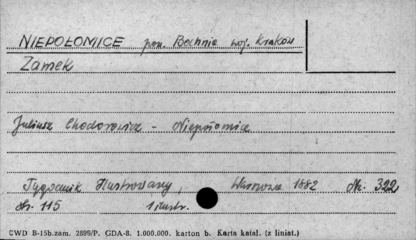 NIEPOŁOMICE pow. Bochnia woj. Kraków
Zamek
Juliusz Chodorowicz - Niepołomice
Tygodnik Ilustrowany, Warszawa 1882 Nr. 322
str. 115 1 ilustr.
CWD B-15b.zam. 2899/P. GDA-8. 1.000.000. karton b. Karta katal. (z liniat.)